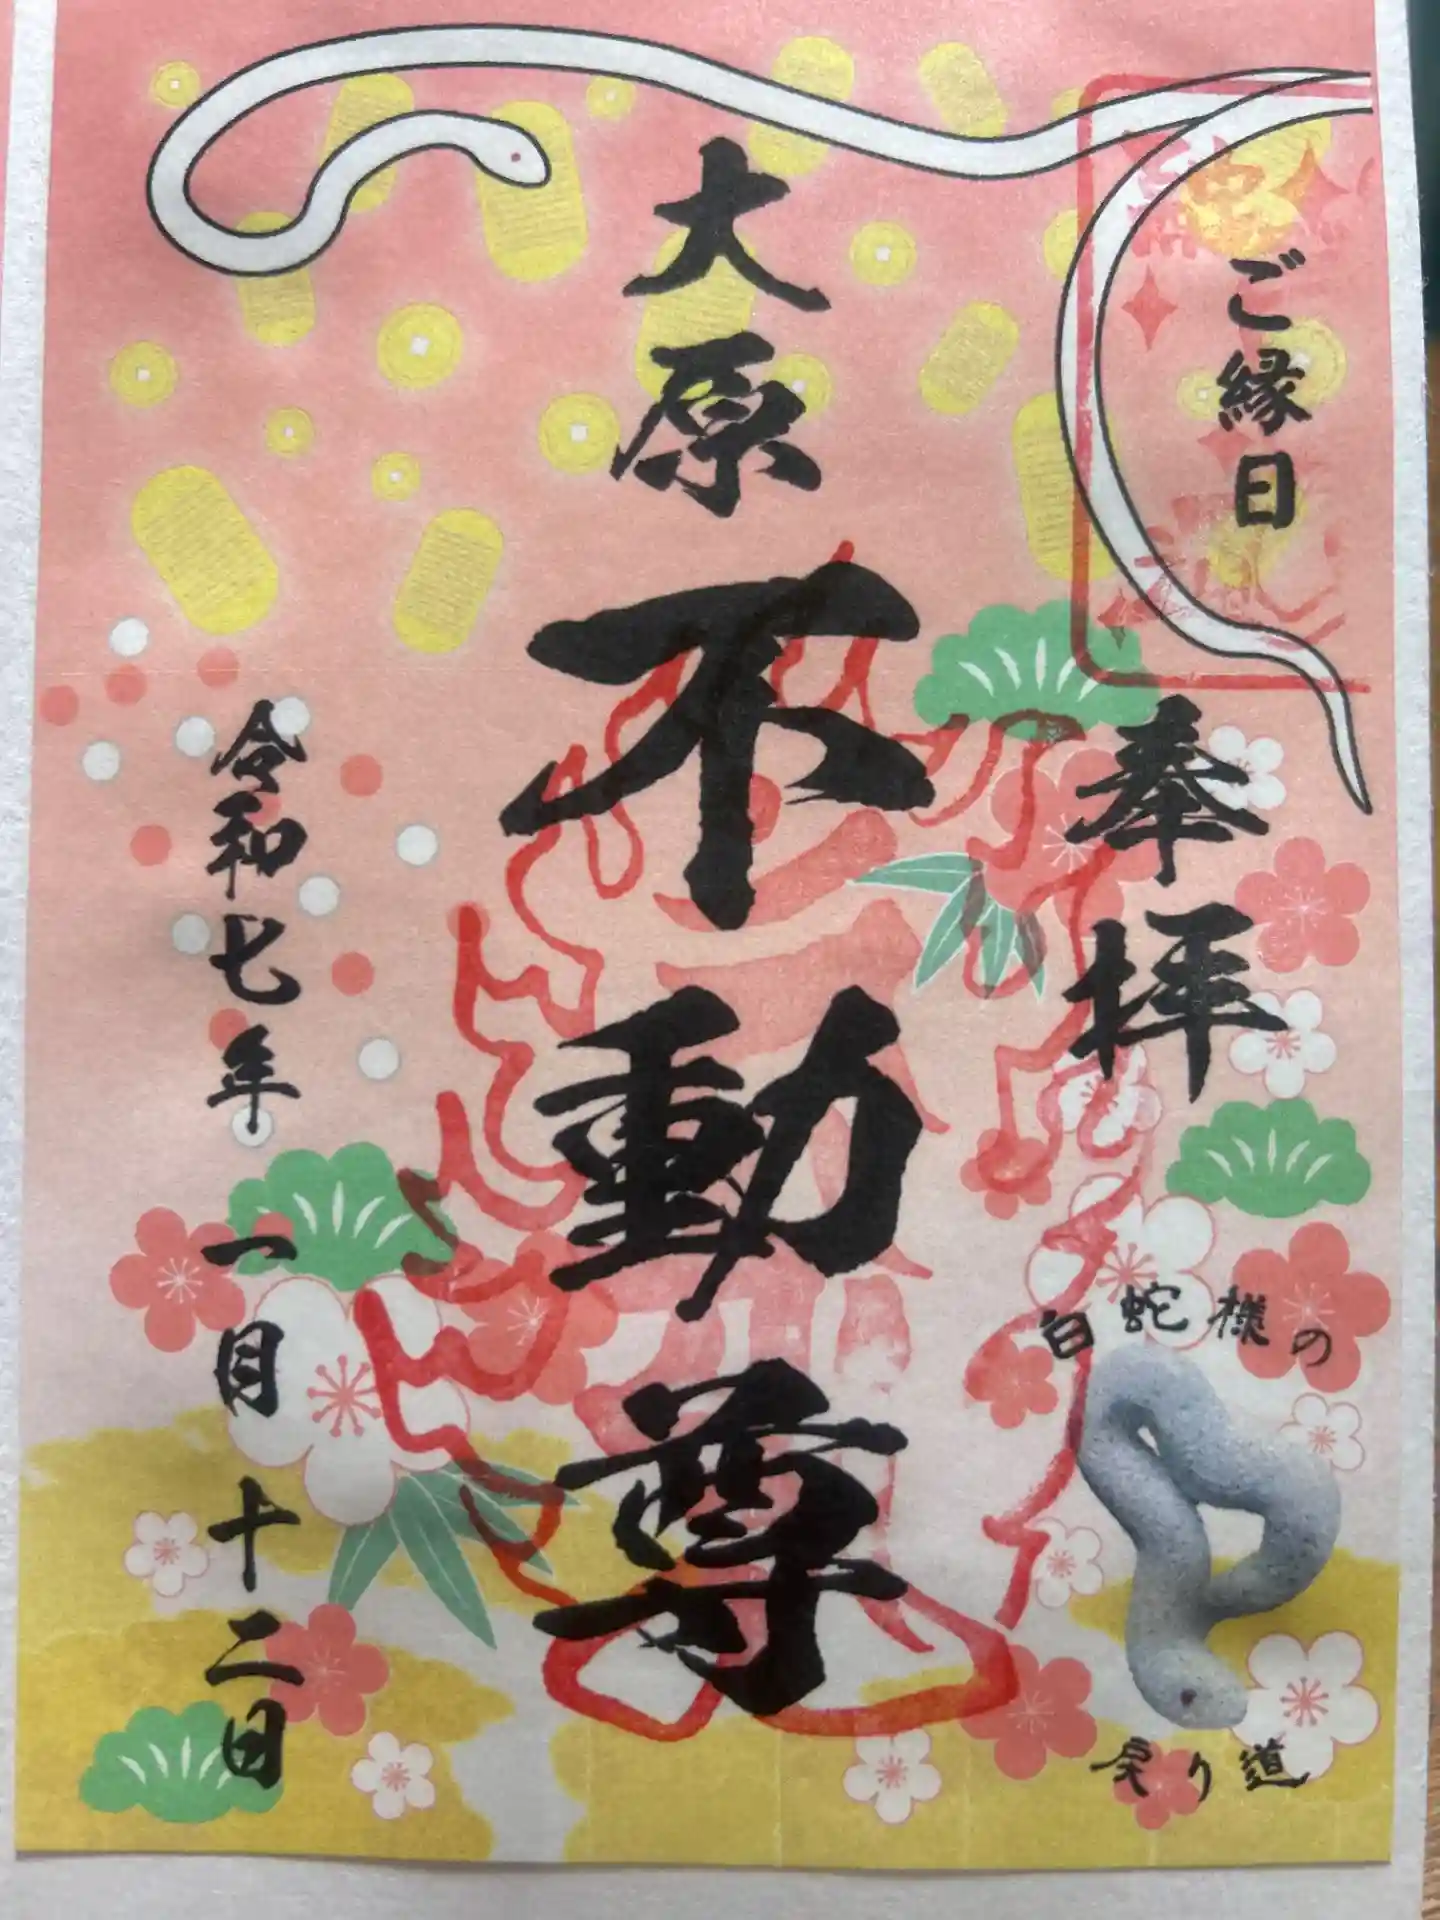 ご縁日
奉拝
白蛇様の
戻り道
大原
不動尊
令和七年
一月十二日